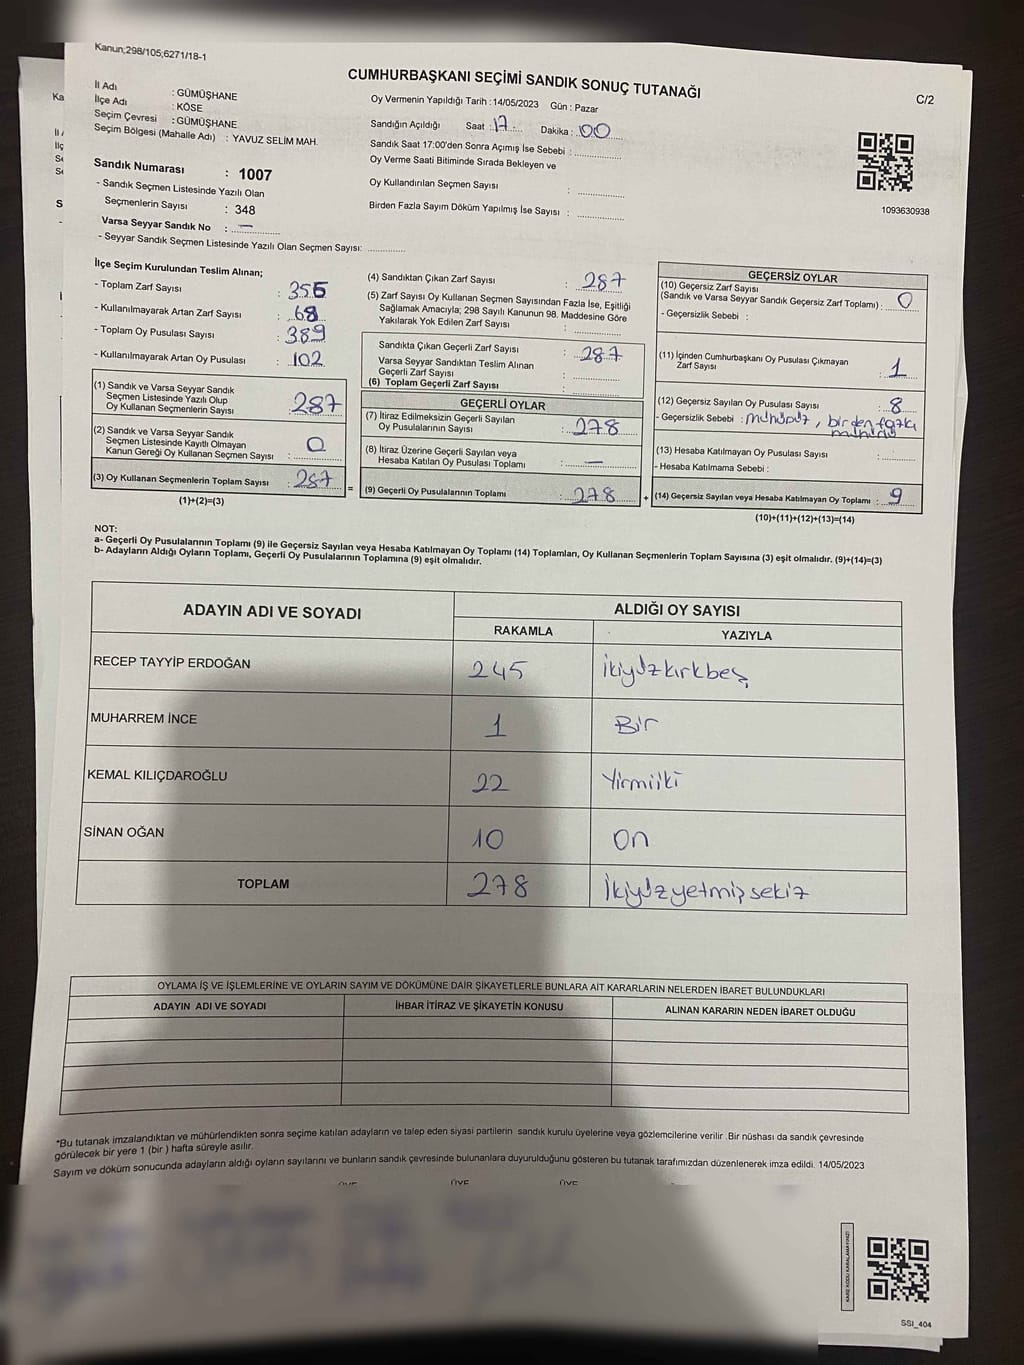 Kanun;298/105;6271/18-1
CUMHURBAŞKANI SEÇİMİ SANDIK SONUÇ TUTANAĞI
C/2
İl Adı : GÜMÜŞHANE
İlçe Adı : KÖSE
Seçim Çevresi : GÜMÜŞHANE
Seçim Bölgesi (Mahalle Adı) : YAVUZ SELİM MAH.
Sandık Numarası : 1007
- Sandık Seçmen Listesinde Yazılı Olan
Seçmenlerin Sayısı : 348
Varsa Seyyar Sandık No : —
- Seyyar Sandık Seçmen Listesinde Yazılı Olan Seçmen Sayısı: ..............
Oy Vermenin Yapıldığı Tarih : 14/05/2023 Gün : Pazar
Sandığın Açıldığı Saat : 17 Dakika : 00
Sandık Saat 17:00'den Sonra Açımış İse Sebebi : ..............
Oy Verme Saati Bitiminde Sırada Bekleyen ve
Oy Kullandırılan Seçmen Sayısı : ..............
Birden Fazla Sayım Döküm Yapılmış İse Sayısı : ..............
1093630938
İlçe Seçim Kurulundan Teslim Alınan;
- Toplam Zarf Sayısı : 355
- Kullanılmayarak Artan Zarf Sayısı : 68
- Toplam Oy Pusulası Sayısı : 389
- Kullanılmayarak Artan Oy Pusulası : 102
(1) Sandık ve Varsa Seyyar Sandık
Seçmen Listesinde Yazılı Olup
Oy Kullanan Seçmenlerin Sayısı : 287
(2) Sandık ve Varsa Seyyar Sandık
Seçmen Listesinde Kayıtlı Olmayan
Kanun Gereği Oy Kullanan Seçmen Sayısı : 0
(3) Oy Kullanan Seçmenlerin Toplam Sayısı : 287
(1)+(2)=(3)
=
(4) Sandıktan Çıkan Zarf Sayısı : 287
(5) Zarf Sayısı Oy Kullanan Seçmen Sayısından Fazla İse, Eşitliği
Sağlamak Amacıyla; 298 Sayılı Kanunun 98. Maddesine Göre
Yakılarak Yok Edilen Zarf Sayısı : ..............
Sandıkta Çıkan Geçerli Zarf Sayısı : 287
Varsa Seyyar Sandıktan Teslim Alınan
Geçerli Zarf Sayısı : ..............
(6) Toplam Geçerli Zarf Sayısı : ..............
GEÇERLİ OYLAR
(7) İtiraz Edilmeksizin Geçerli Sayılan
Oy Pusulalarının Sayısı : 278
(8) İtiraz Üzerine Geçerli Sayılan veya
Hesaba Katılan Oy Pusulası Toplamı : —
(9) Geçerli Oy Pusulalarının Toplamı : 278
+
GEÇERSİZ OYLAR
(10) Geçersiz Zarf Sayısı
(Sandık ve Varsa Seyyar Sandık Geçersiz Zarf Toplamı) : 0
- Geçersizlik Sebebi :
(11) İçinden Cumhurbaşkanı Oy Pusulası Çıkmayan
Zarf Sayısı : 1
(12) Geçersiz Sayılan Oy Pusulası Sayısı : 8
- Geçersizlik Sebebi : mühürsüz, birden fazla
mühürlü
(13) Hesaba Katılmayan Oy Pusulası Sayısı : ..............
- Hesaba Katılmama Sebebi :
(14) Geçersiz Sayılan veya Hesaba Katılmayan Oy Toplamı : 9
(10)+(11)+(12)+(13)=(14)
NOT:
a- Geçerli Oy Pusulalarının Toplamı (9) ile Geçersiz Sayılan veya Hesaba Katılmayan Oy Toplamı (14) Toplamları, Oy Kullanan Seçmenlerin Toplam Sayısına (3) eşit olmalıdır. (9)+(14)=(3)
b- Adayların Aldığı Oyların Toplamı, Geçerli Oy Pusulalarının Toplamına (9) eşit olmalıdır.
ADAYIN ADI VE SOYADI ALDIĞI OY SAYISI
RAKAMLA YAZIYLA
RECEP TAYYİP ERDOĞAN 245 İkiyüzkırkbeş
MUHARREM İNCE 1 Bir
KEMAL KILIÇDAROĞLU 22 Yirmiiki
SİNAN OĞAN 10 On
TOPLAM 278 İkiyüzyetmişsekiz
OYLAMA İŞ VE İŞLEMLERİNE VE OYLARIN SAYIM VE DÖKÜMÜNE DAİR ŞİKAYETLERLE BUNLARA AİT KARARLARIN NELERDEN İBARET BULUNDUKLARI
ADAYIN ADI VE SOYADI İHBAR İTİRAZ VE ŞİKAYETİN KONUSU ALINAN KARARIN NEDEN İBARET OLDUĞU
*Bu tutanak imzalandıktan ve mühürlendikten sonra seçime katılan adayların ve talep eden siyasi partilerin sandık kurulu üyelerine veya gözlemcilerine verilir .Bir nüshası da sandık çevresinde
görülecek bir yere 1 (bir ) hafta süreyle asılır.
Sayım ve döküm sonucunda adayların aldığı oyların sayılarını ve bunların sandık çevresinde bulunanlara duyurulduğunu gösteren bu tutanak tarafımızdan düzenlenerek imza edildi. 14/05/2023
ÜYE ÜYE ÜYE
KARE KODU KARALAMAYINIZ!
SSI_404